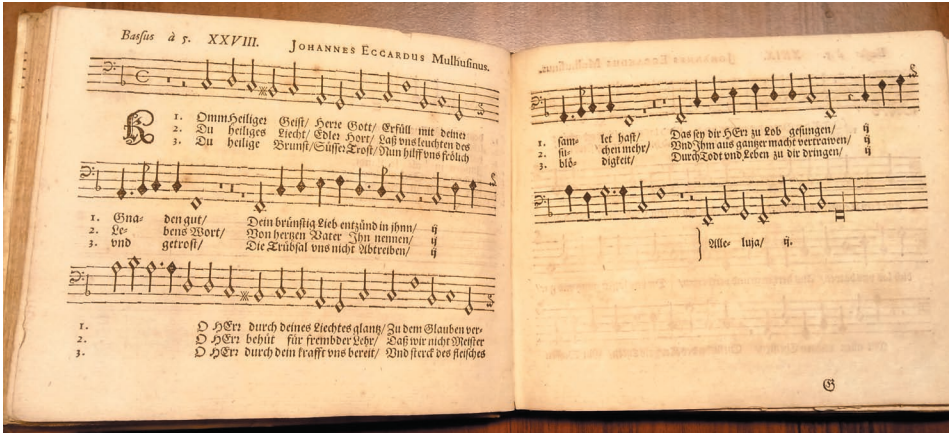 Bassus à 5. XXVIII. JOHANNES ECCARDUS Mulhusinus.
K
1. OmmHeiliger Geist/ Herre Gott/ Erfüll mit deiner
2. Du heiliges Liecht/ Edler Hort/ Laß vns leuchten des
3. Du heilige Brunst/ Süsser Trost/ Nun hilff vns frölich
1. Gna- den gut/ Dein brünstig Lieb entzünd in jhnn/ ij
2. Le- bens Wort/ Von hertzen Vater Jhn nennen/ ij
3. vnd getrost/ Die Trübsal vns nicht Abtreiben/ ij
1. O HErr durch deines Liechtes glantz/ Zu dem Glauben ver-
2. O HErr behüt für frembder Lehr/ Daß wir nicht Meister
3. O HErr durch dein krafft vns bereit/ Vnd sterck des fleisches
1. sam- let hast/ Das sey dir HErr zu Lob gesungen/ ij
2. su- chen mehr/ Vnd Jhm aus ganzer macht vertrawen/ ij
3. blö- digkeit/ Durch Todt vnd Leben zu dir dringen/ ij
Alle- luja/ ij.
G